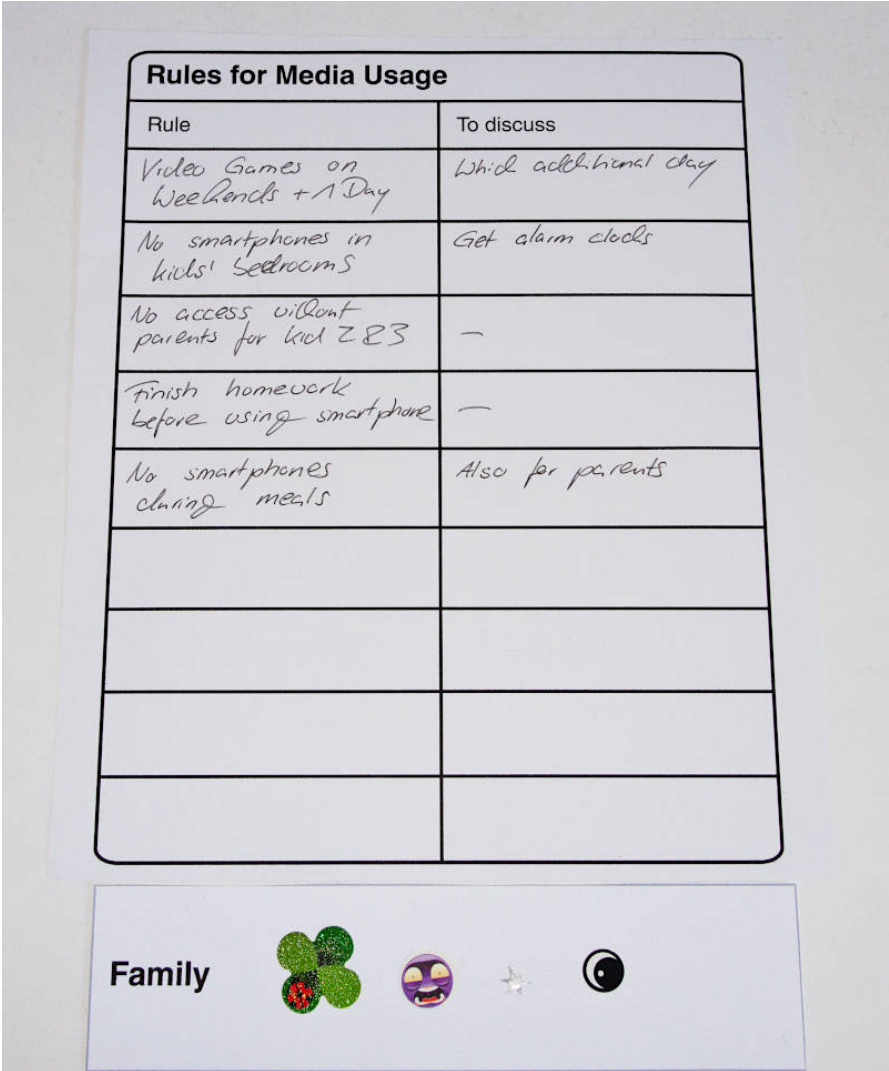 Rules for Media Usage
Rule
To discuss
Video Games on
Weekends + 1 Day
Which additional day
No smartphones in
kids' bedrooms
Get alarm clocks
No access without
parents for kid 2&3
—
Finish homework
before using smartphone
—
No smartphones
during meals
Also for parents
Family